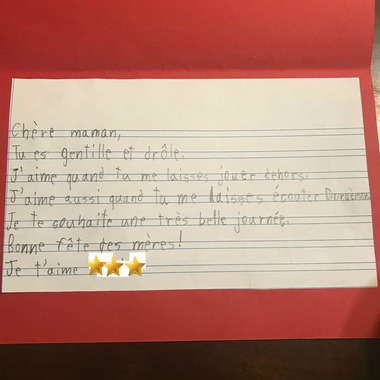 Chère maman,
Tu es gentille et drôle.
J'aime quand tu me laisses jouer dehors.
J'aime aussi quand tu me laisses écouter Doraémon.
Je te souhaite une très belle journée.
Bonne fête des mères!
Je t'aime